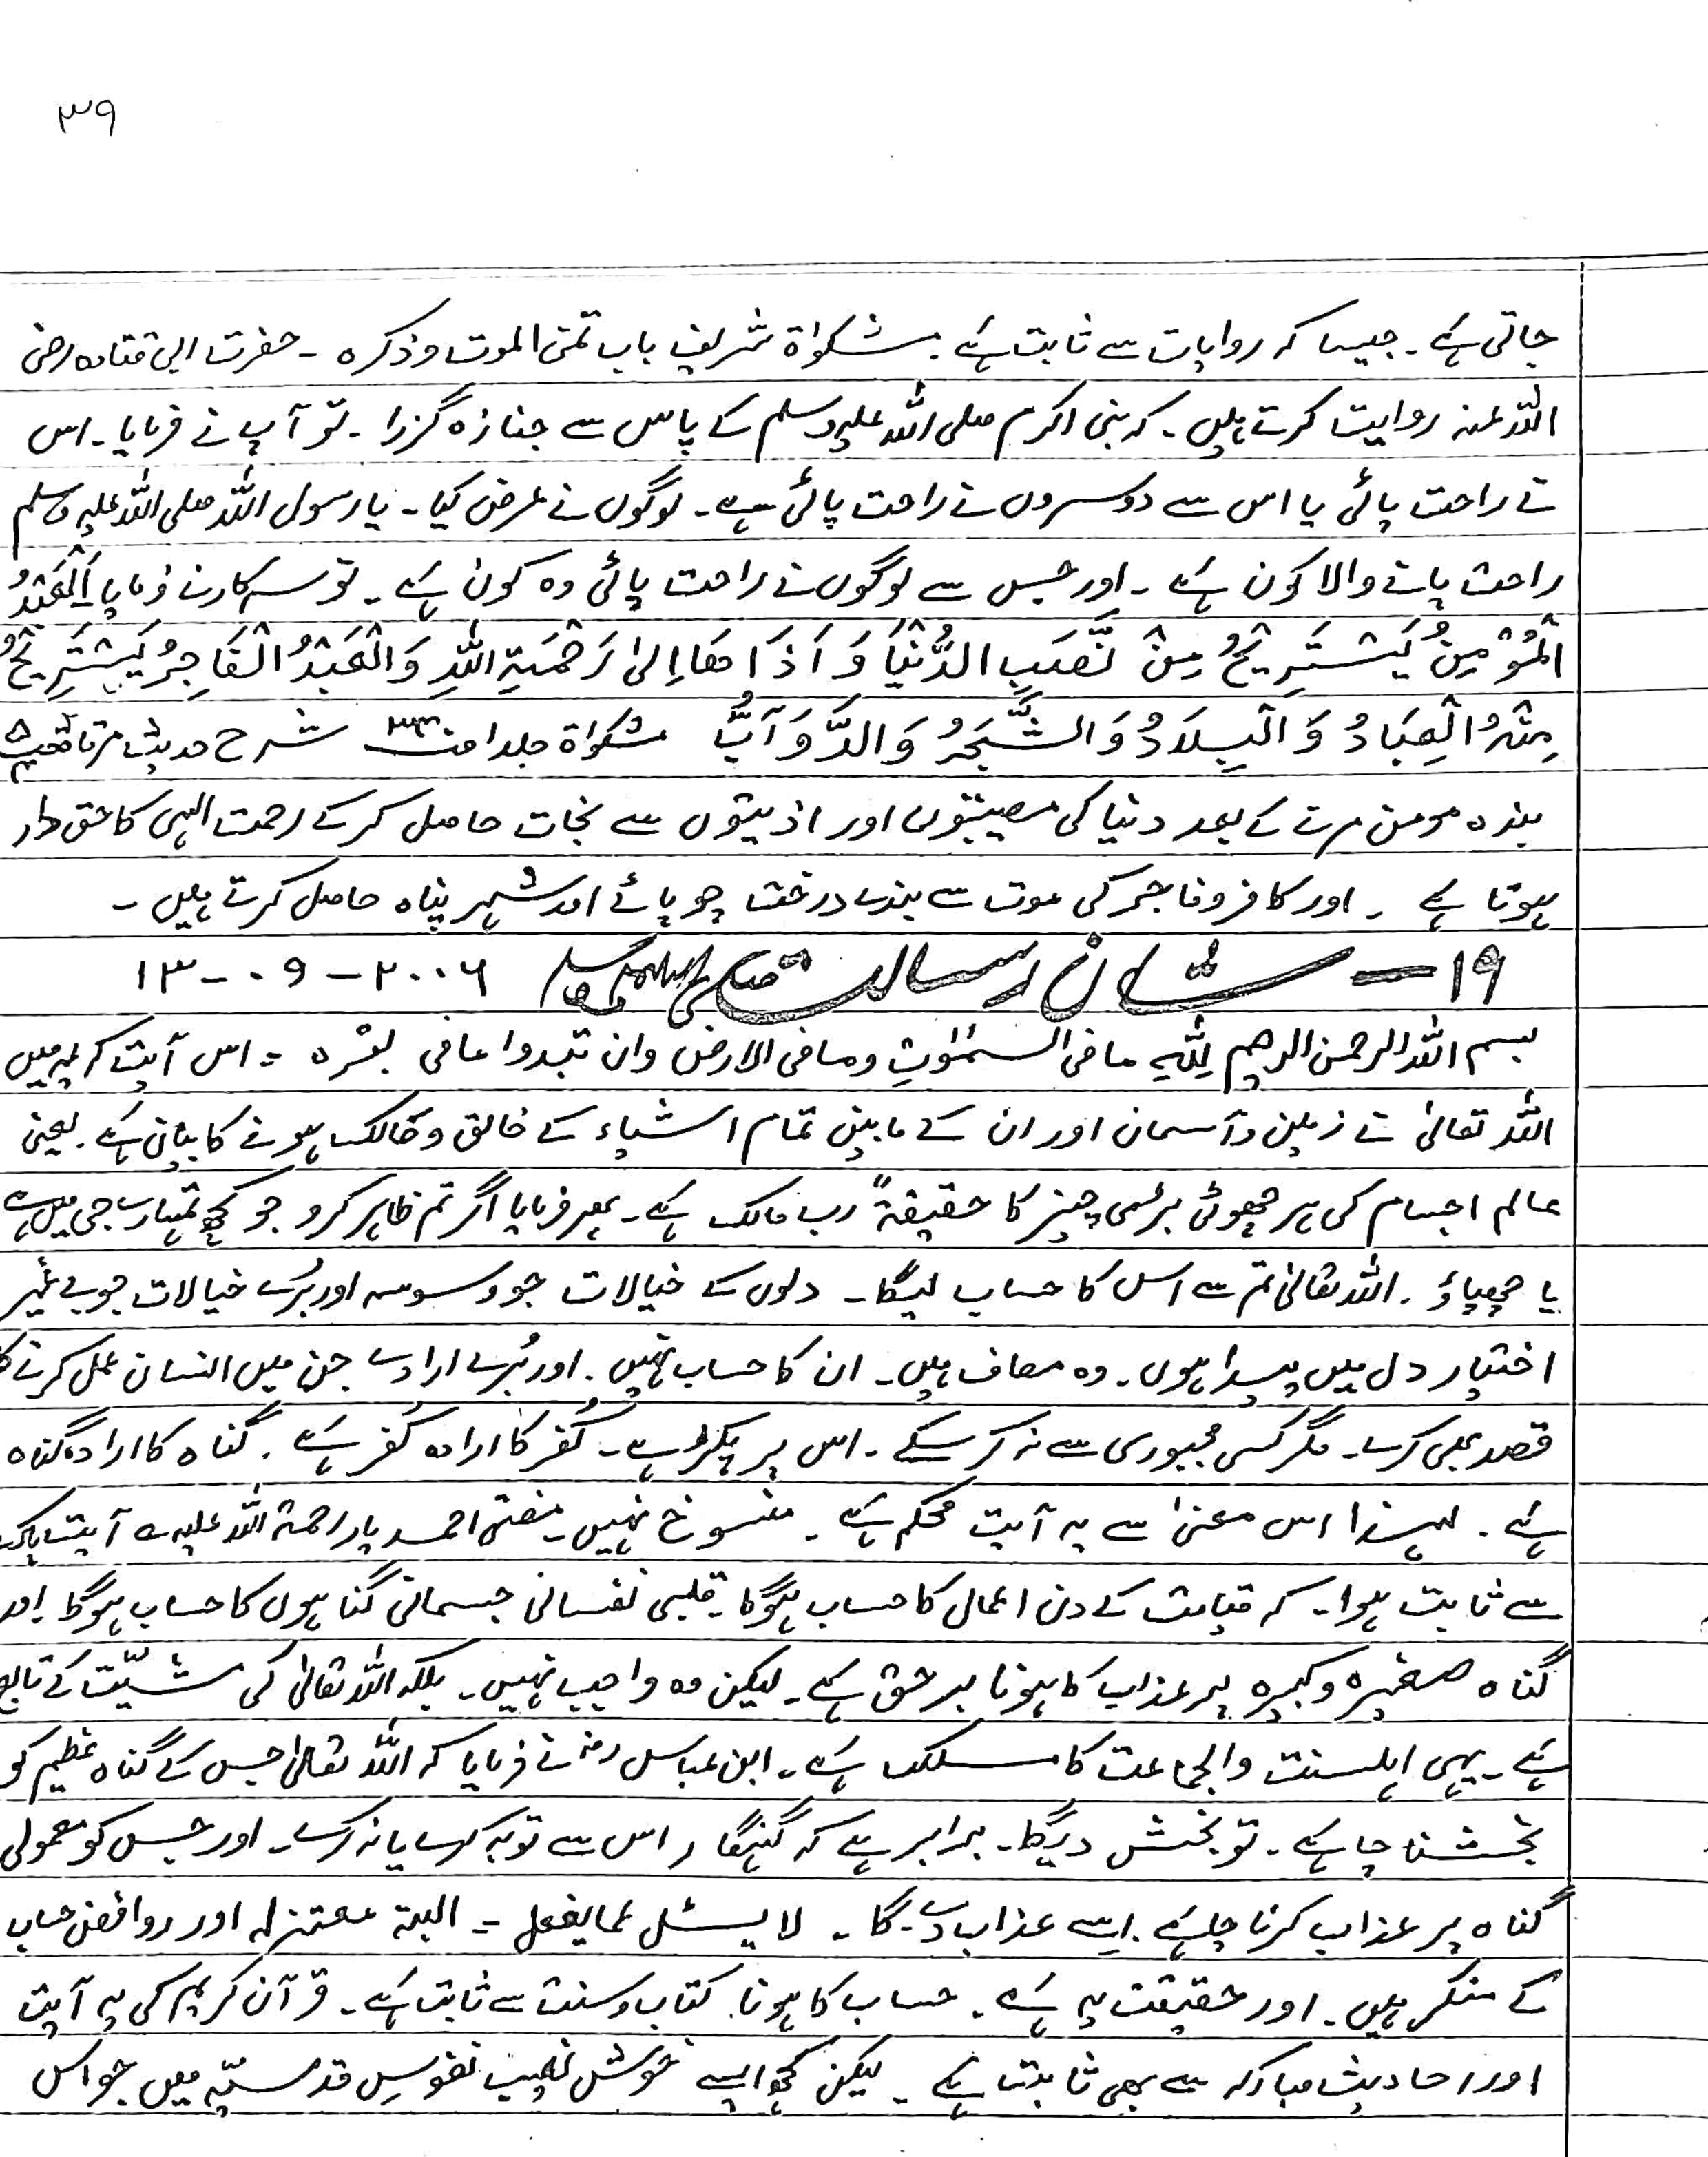 ۳۹
جاتی ہے ۔ جیسا کہ روایات سے ثابت ہے ۔ مشکوٰۃ شریف باب تمنی الموت وذکرہ ۔ حضرت ابی قتادہ رضی
اللہ عنہ روایت کرتے ہیں ۔ کہ نبی اکرم صلی اللہ علیہ وسلم کے پاس سے جنازہ گزرا ۔ تو آپ نے فرمایا ۔ اس
نے راحت پائی یا اس سے دوسروں نے راحت پائی ہے ۔ لوگوں نے عرض کیا ۔ یارسول اللہ صلی اللہ علیہ وسلم
راحت پانے والا کون ہے ۔ اور جس سے لوگوں نے راحت پائی وہ کون ہے ۔ تو سرکار نے فرمایا اَلْعَبْدُ
الْمُؤْمِنُ یَسْتَرِیْحُ مِنْ نَّصَبِ الدُّنْیَا وَ اَذَاھَا اِلیٰ رَحْمَۃِ اللّٰہِ وَالْعَبْدُ الْفَاجِرُ یَسْتَرِیْحُ
مِنْہُ الْعِبَادُ وَ الْبِلَادُ وَ الشَّجَرُ وَ الدَّوَآبُّ مشکوٰۃ جلد ا شرح حدیث
بندہ مومن مرنے کے بعد دنیا کی مصیبتوں اور اذیتوں سے نجات حاصل کر کے رحمت الہی کا حق دار
ہوتا ہے ۔ اور کافر و فاجر کی موت سے بندے درخت چوپائے اور شہر پناہ حاصل کرتے ہیں ۔
۱۹ ـ شان رسالت صلی اللہ علیہ وسلم ۲۰۰۶ ـ ۰۹ ـ ۱۳
بسم اللہ الرحمن الرحیم لِلّٰہِ مافی السمٰوٰتِ ومافی الارض وان تبدوا مافی بقرہ ۔ اس آیت کریمہ میں
اللہ تعالیٰ نے زمین وآسمان اور ان کے مابین تمام اشیاء کے خالق و مالک ہونے کا بیان ہے ۔ یعنی
عالم اجسام کی ہر چھوٹی بڑی چیز کا حقیقۃً رب مالک ہے ۔ پھر فرمایا اگر تم ظاہر کرو جو کچھ تمہارے جی میں ہے
یا چھپاؤ ۔ اللہ تعالیٰ تم سے اس کا حساب لیگا ۔ دلوں کے خیالات جو وسوسہ اور بُرے خیالات جو بے غیر
اختیار دل میں پیدا ہوں ۔ وہ معاف ہیں ۔ ان کا حساب نہیں ۔ اور بُرے ارادے جن میں انسان عمل کرنے کا
قصد بھی کرے ۔ مگر کسی مجبوری سے نہ کر سکے ۔ اس پر پکڑ ہے ۔ کُفر کا ارادہ کُفر ہے ۔ گناہ کا ارادہ گناہ
ہے ۔ لہذا اس معنیٰ سے یہ آیت محکم ہے ۔ منسوخ نہیں ۔ مفتی احمد یار رحمۃ اللہ علیہ ۔ آیت پاک
سے ثابت ہوا ۔ کہ قیامت کے دن اعمال کا حساب ہوگا ۔ قلبی نفسانی جسمانی گناہوں کا حساب ہوگا ۔ اور
گناہ صغیرہ وکبیرہ پر عذاب کا ہونا برحق ہے ۔ لیکن وہ واجب نہیں ۔ بلکہ اللہ تعالیٰ کی مشیّت کے تابع
ہے ۔ یہی اہلسنت والجماعت کا مسلک ہے ۔ ابن عباس رضؓ نے فرمایا کہ اللہ تعالیٰ جس کے گناہ عظیم کو
بخشنا چاہے ۔ تو بخش دیگا ۔ برابر ہے کہ گنہگار اس سے توبہ کرے یا نہ کرے ۔ اور جس کو معمولی
گناہ پر عذاب کرنا چاہے ۔ اسے عذاب دے گا ۔ لا یسئل عما یفعل ۔ البتہ معتزلہ اور روافض حساب
کے منکر ہیں ۔ اور حقیقت یہ ہے ۔ حساب کا ہونا کتاب وسنت سے ثابت ہے ۔ قرآن کریم کی یہ آیت
اور احادیث مبارکہ سے بھی ثابت ہے ۔ لیکن کچھ ایسے خوش نصیب نفوسِ قدسیّہ ہیں جو اس